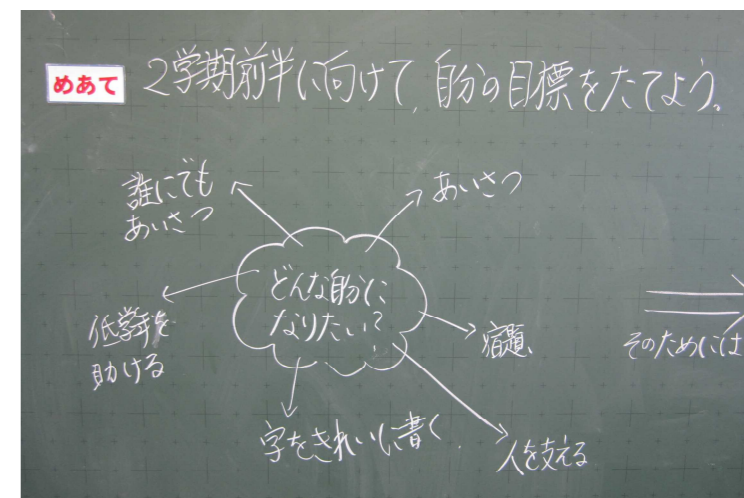 めあて 2学期前半に向けて、自分の目標をたてよう。
誰にでも
あいさつ
あいさつ
どんな自分に
なりたい?
低学年を
助ける
宿題、
そのためには
字をきれいに書く
人を支える